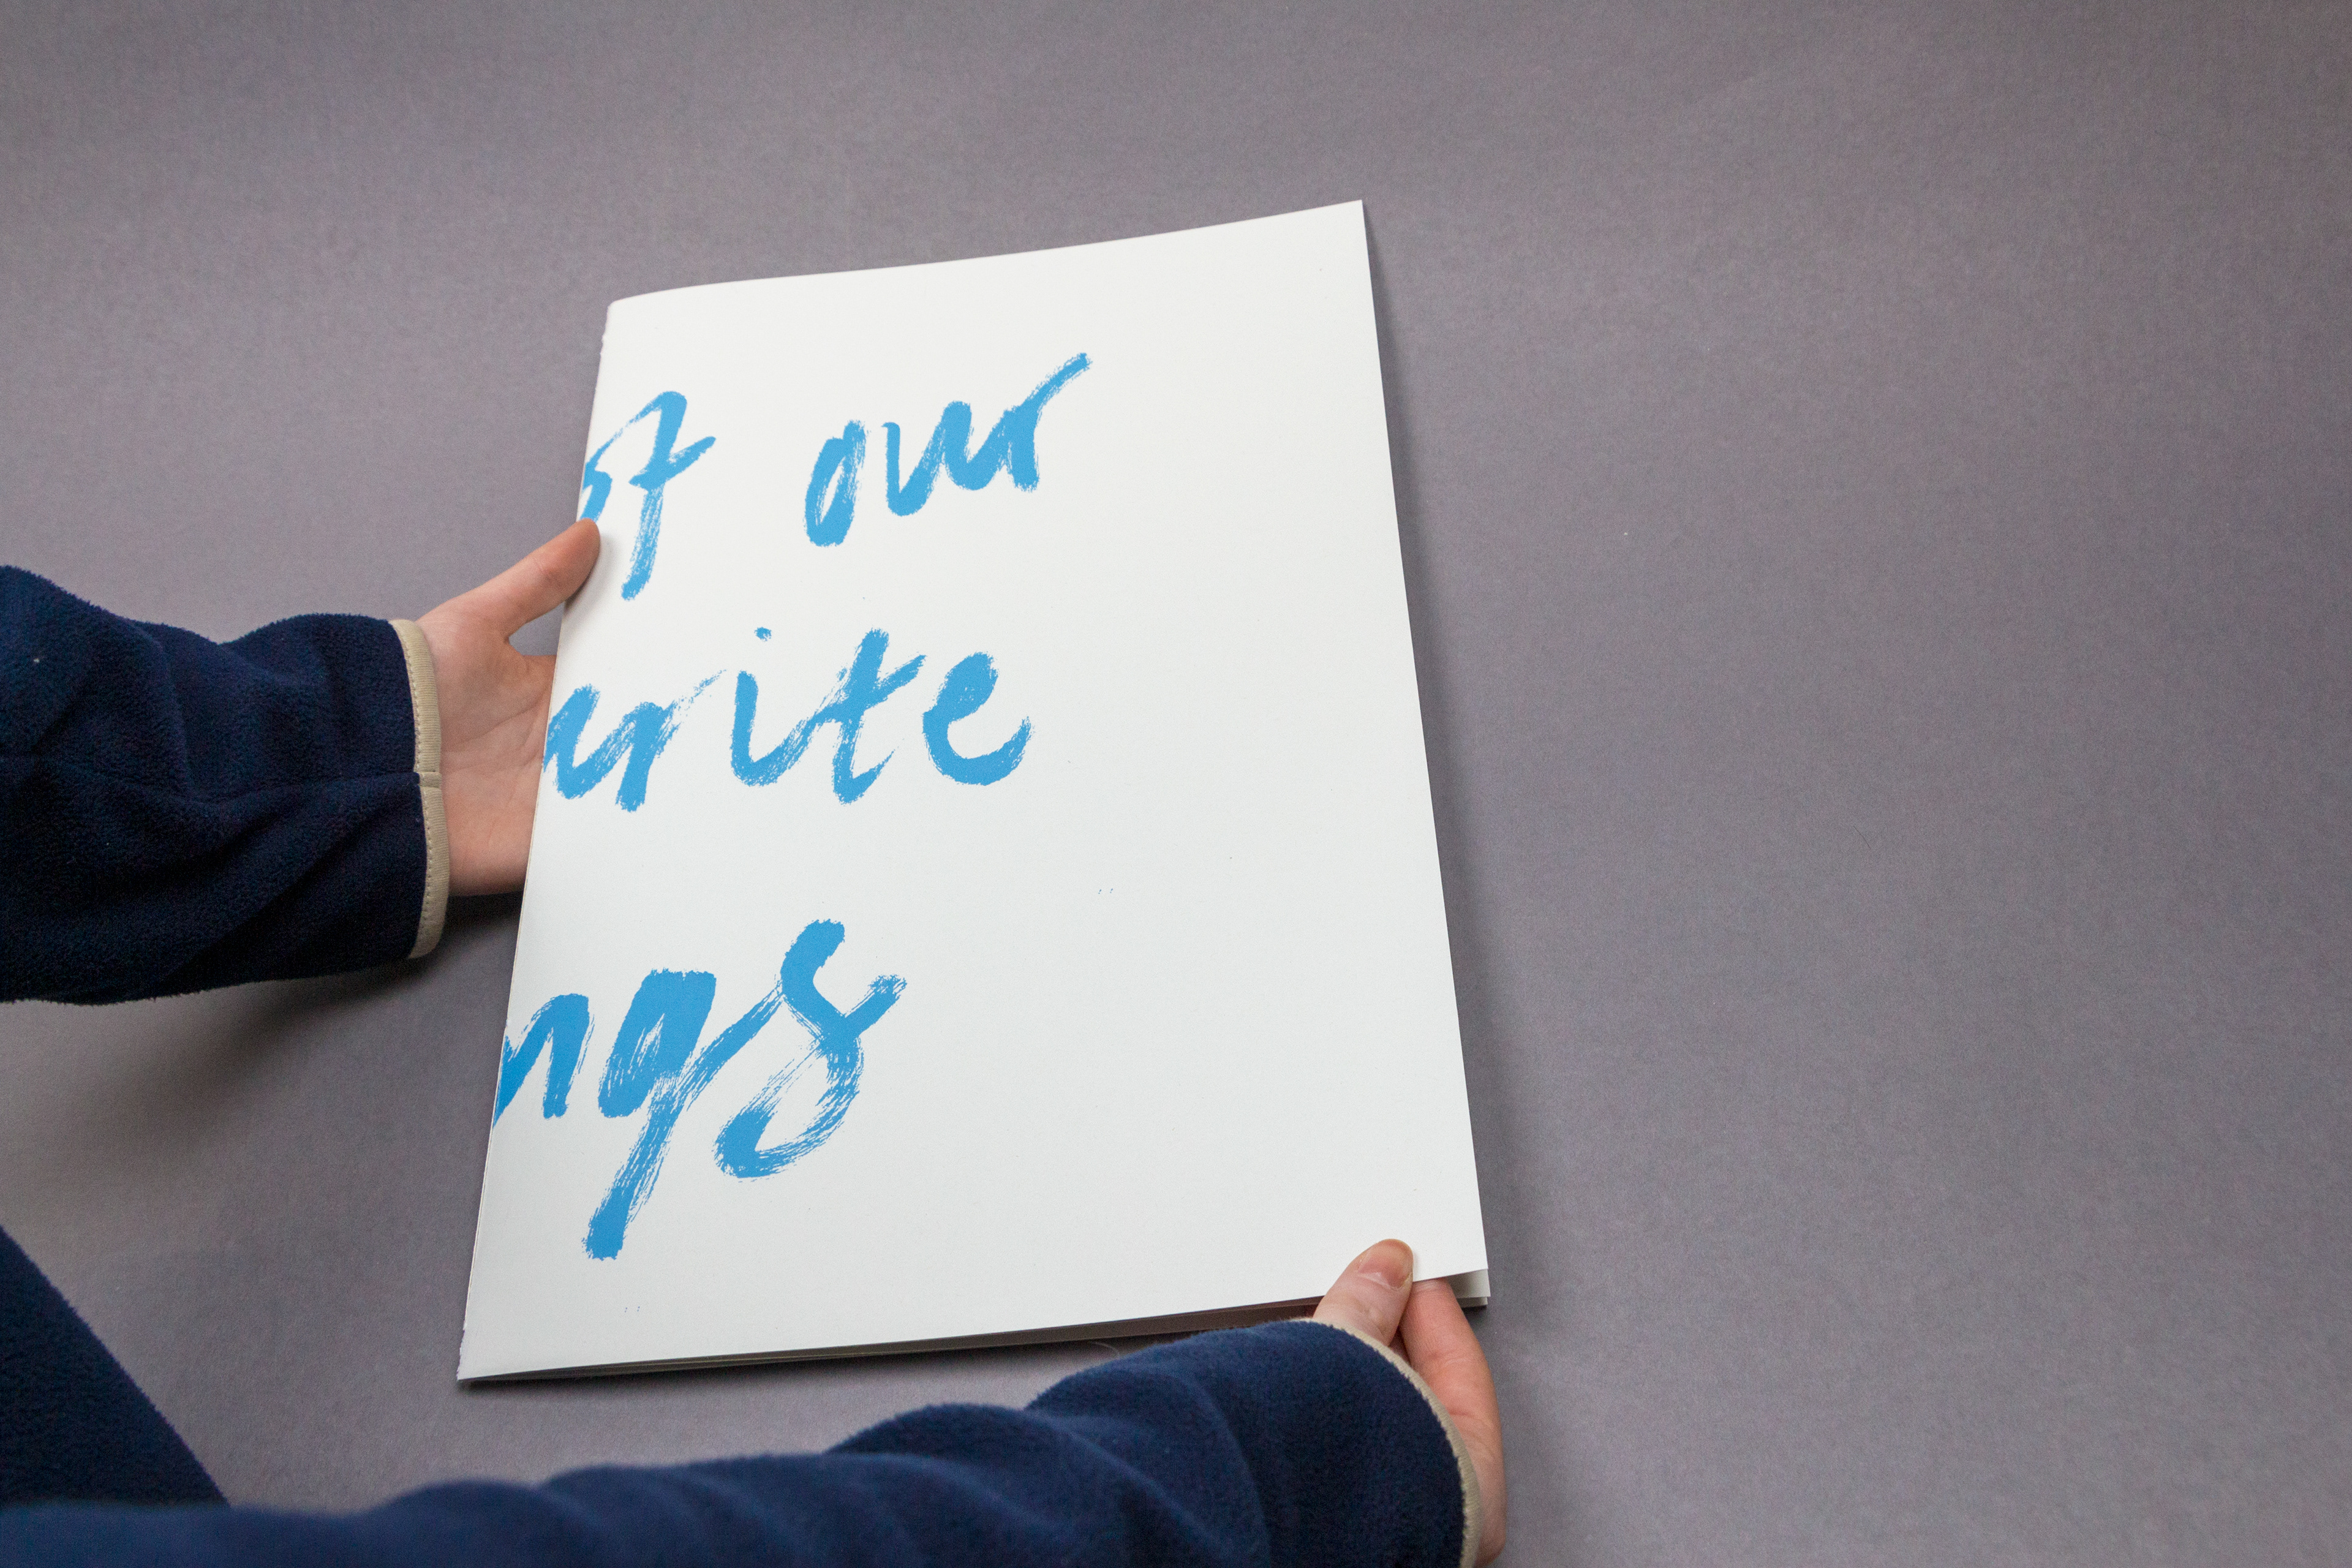 of our
urite
ngs